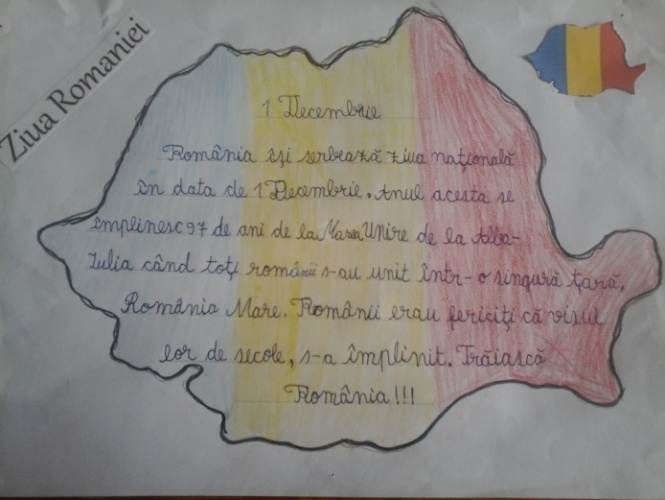 Ziua Romaniei
1 Decembrie
România își serbează ziua națională
în data de 1 Decembrie. Anul acesta se
împlinesc 97 de ani de la Marea Unire de la Alba-
Iulia când toți românii s-au unit într-o singură țară,
România Mare. Românii erau fericiți că visul
lor de secole, s-a împlinit. Trăiască
România!!!